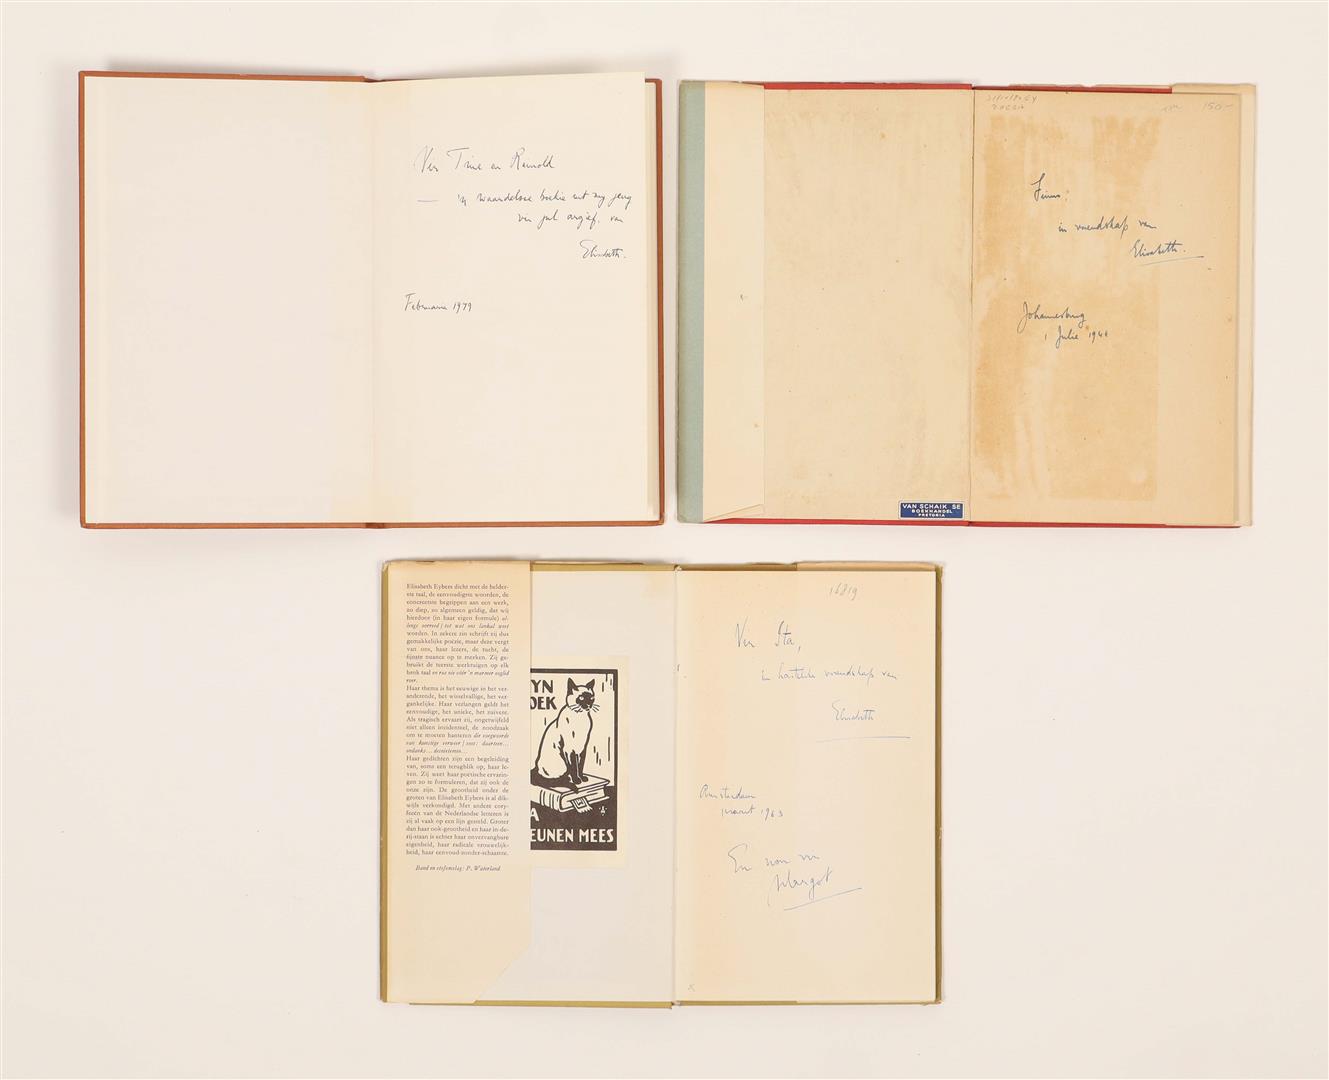 Vir Tine en Reinold
— 'n waardelose boekie uit my jeug
vir jul argief, van
Elisabeth.
Februarie 1979
150.-
in vriendskap van
Elisabeth.
Johannesburg
1 Julie 194
VAN SCHAIK SE
BOEKHANDEL
PRETORIA
Elisabeth Eybers dicht met de helder-
ste taal, de eenvoudigste woorden, de
concreetste begrippen aan een werk,
zo diep, zo algemeen geldig, dat wij
hierdoor (in haar eigen formule) al-
lengs oorreed / tot wat ons lankal weet
worden. In zekere zin schrijft zij dus
gemakkelijke poëzie, maar deze vergt
van ons, haar lezers, de tucht, de
fijnste nuance op te merken. Zij ge-
bruikt de teerste werktuigen op elk
brok taal en ras nie vóór 'n marmer ooglid
roer.
Haar thema is het eeuwige in het ver-
anderende, het wisselvallige, het ver-
gankelijke. Haar verlangen geldt het
eenvoudige, het unieke, het zuivere.
Als tragisch ervaart zij, ongetwijfeld
niet alleen incidenteel, de noodzaak
om te moeten hanteren die voegwoorde
van kunstige verweer / soos: daarteen...
ondanks... desnieteenstaande...
Haar gedichten zijn een begeleiding
van, soms een terugblik op, haar le-
ven. Zij weet haar poëtische ervarin-
gen zo te formuleren, dat zij ook de
onze zijn. De grootheid onder de
groten van Elisabeth Eybers is al dik-
wijls verkondigd. Met andere cory-
feeën van de Nederlandse letteren is
zij al vaak op een lijn gesteld. Groter
dan haar ook-grootheid en haar in-de-
rij-staan is echter haar onvervangbare
eigenheid, haar radicale vrouwelijk-
heid, haar eenvoud-zonder-schaamte.
Band en stofomslag: P. Waterland
YN
OEK
A
EUNEN MEES
16819
Vir Sta,
in hartelike vriendskap van
Elisabeth
Amsterdam
maart 1963
En non vir
Margot